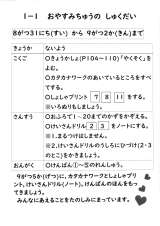 1-1 おやすみちゅうの しゅくだい
8がつ31にち(すい) から 9がつ2か(きん)まで
きょうか ないよう
こくご
○きょうかしょ(P104~110)「やくそく」をよむ。
○カタカナワークのあいているところをすべてする。
○しょしゃプリント 7 8 11 をする。
※いろぬりもしましょう。
さんすう
○おふろで1~20までのかずをかぞえる。
○けいさんドリル 2 3 をノートにする。
※1.まるつけはしません。
※2.けいさんドリルのうしろにひづけ(2・3のとこ)をかきましょう。
おんがく
○けんばん①~⑤のれんしゅう。
9がつ5か(げつ)に、カタカナワークとしょしゃプリント、けいさんドリル(ノート)、けんばんのほんをもってきましょう。
みんなにあえることをたのしみにまっています。